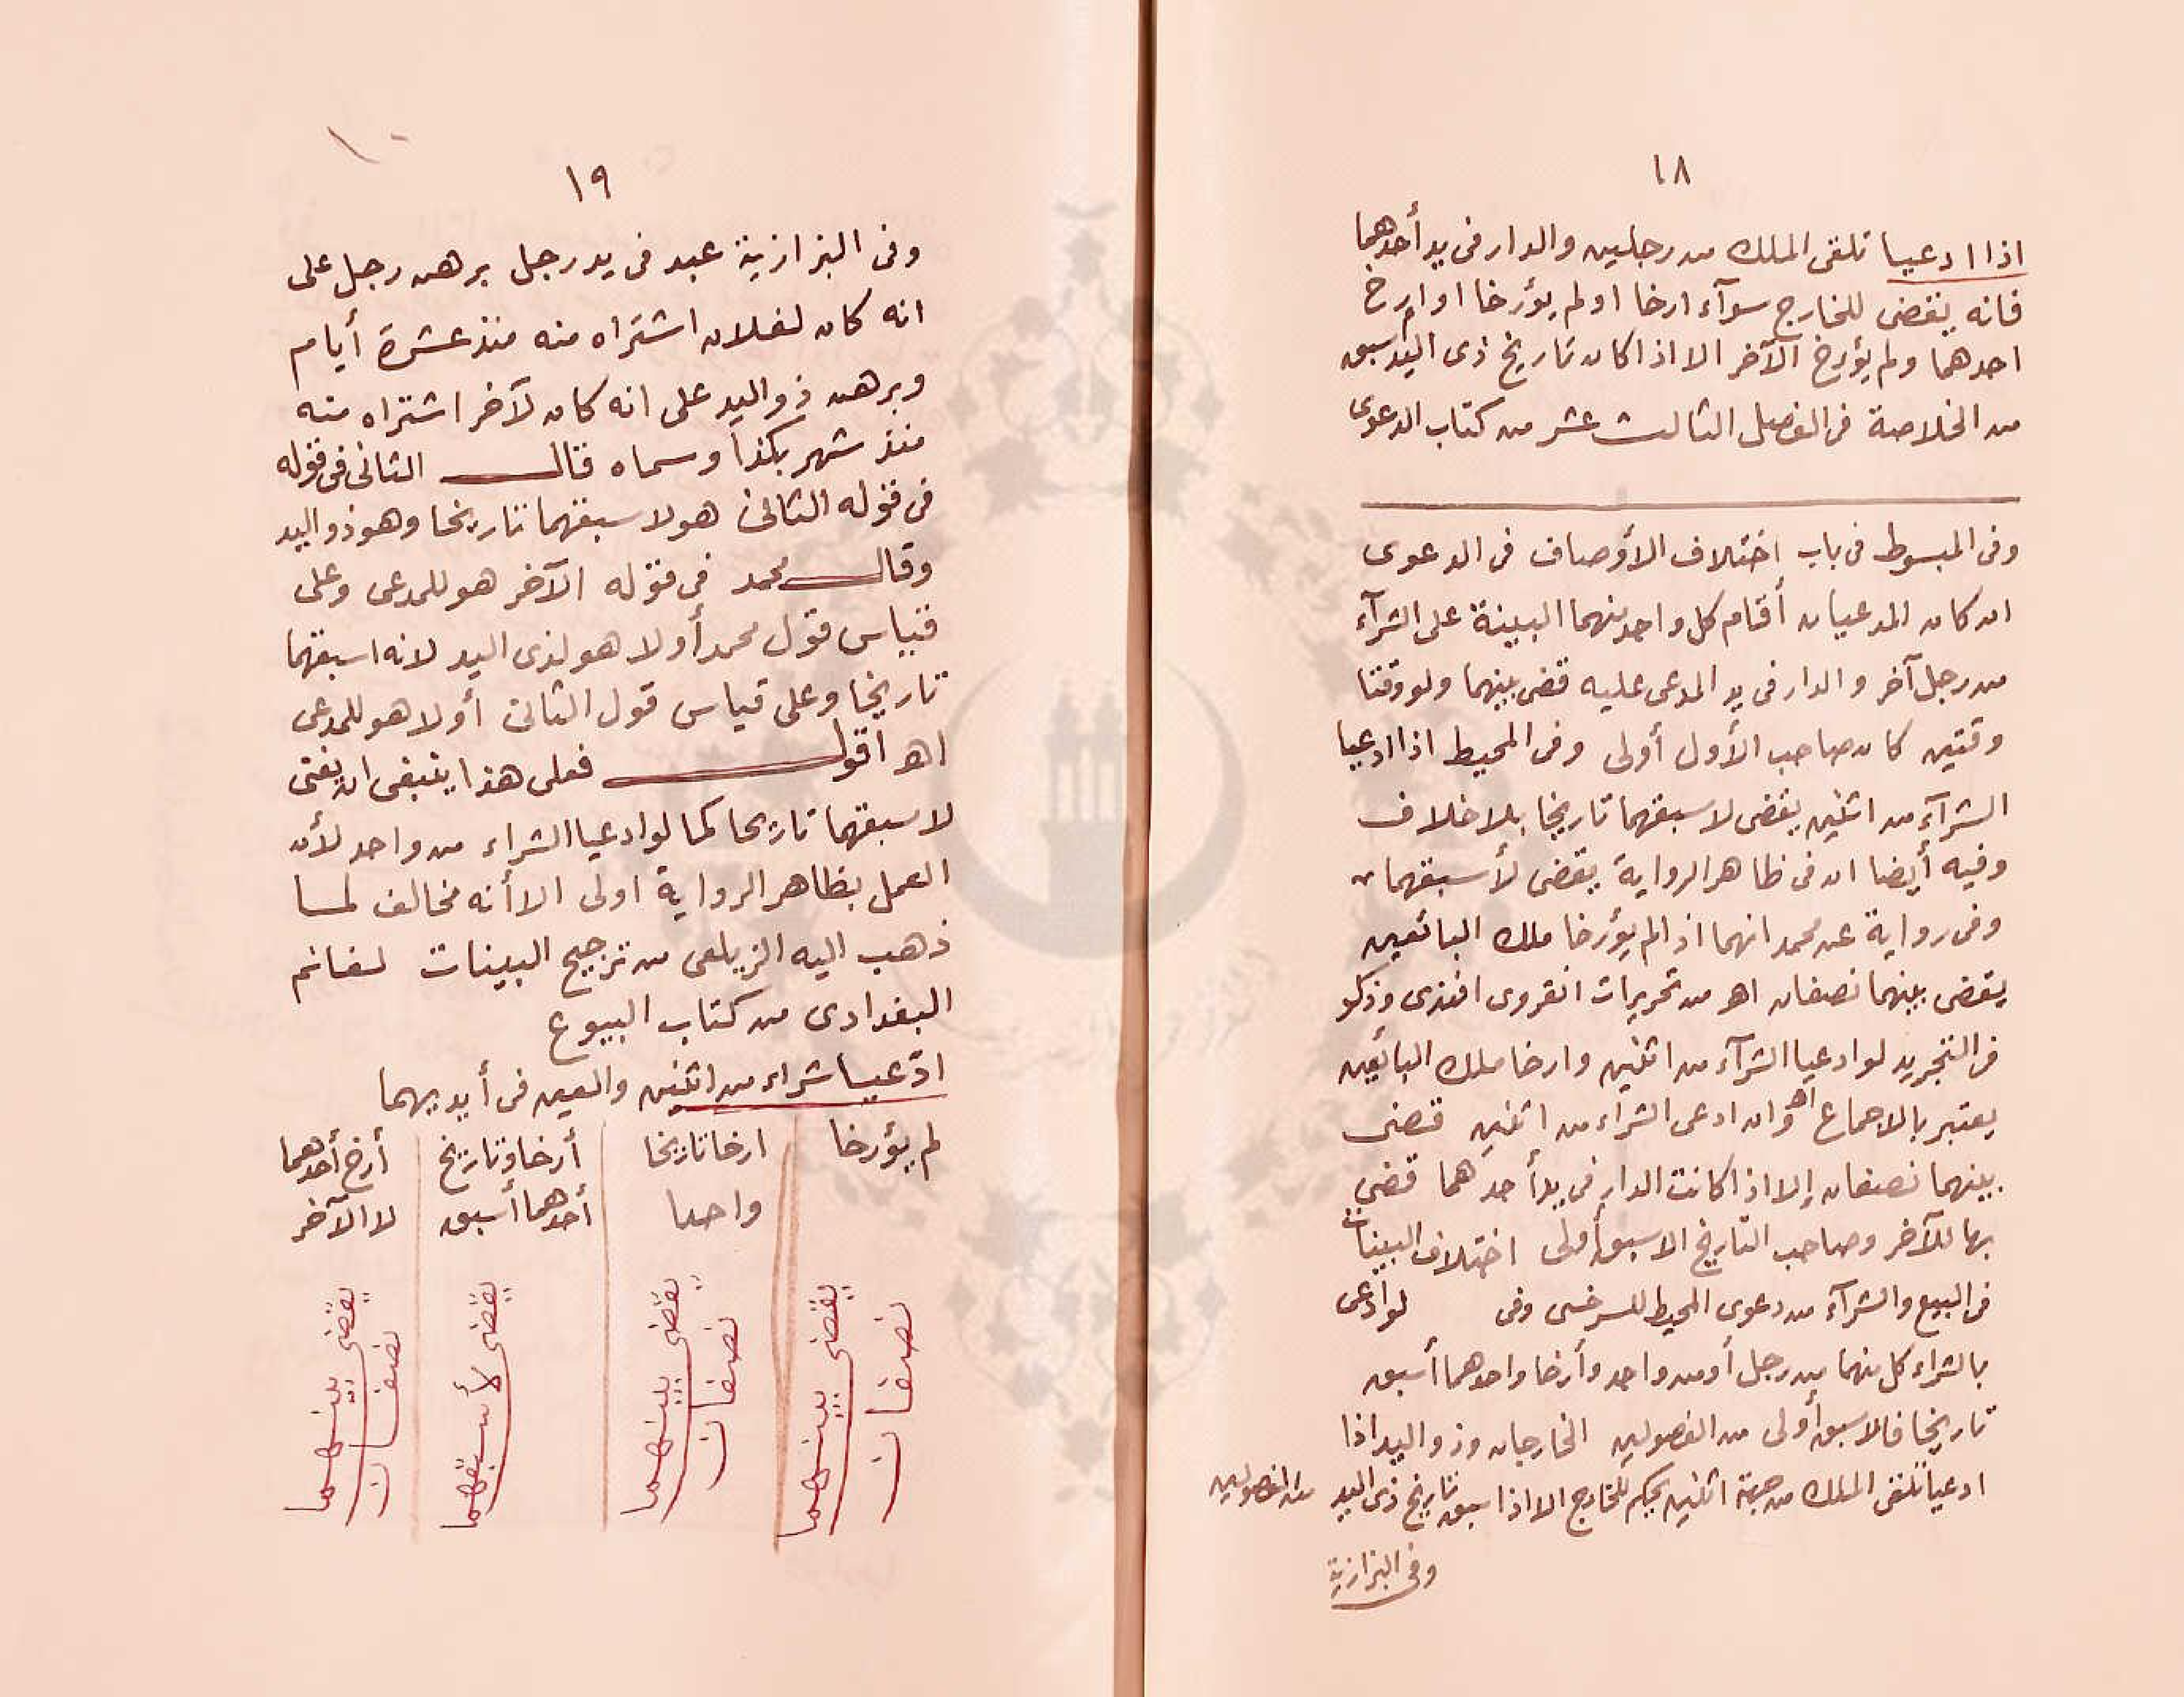 ١٨
اذا ادعيا تلقى الملك من رجلين والدار فى يد أحدهما
فانه يقضى للخارج سوآء ارخا او لم يؤرخا او ارخ
احدهما ولم يؤرخ الآخر الا اذا كان تاريخ ذى اليد اسبق
من الخلاصة فى الفصل الثالث عشر من كتاب الدعوى
وفى المبسوط فى باب اختلاف الأوصاف فى الدعوى
ان كان المدعيان أقام كل واحد منهما البينة على الشرآء
من رجل آخر والدار فى يد المدعى عليه قضى بينهما ولو وقتا
وقتين كان صاحب الأول أولى وفى المحيط اذا ادعيا
الشرآء من اثنين يقضى لاسبقهما تاريخا بلا خلاف
وفيه أيضا ان فى ظاهر الرواية يقضى لأسبقهما
وفى رواية عن محمد انهما اذا لم يؤرخا ملك البائعين
يقضى بينهما نصفان اهـ من تحريرات انقروى افندى وذكر
فى التجريد لو ادعيا الشرآء من اثنين وارخا ملك البائعين
يعتبر بالاجماع اهـ وان ادعى الشراء من اثنين قضى
بينهما نصفان إلا اذا كانت الدار فى يد أحدهما قضى
بها للآخر وصاحب التاريخ الاسبق أولى اختلاف البينات
فى البيع والشرآء من دعوى المحيط للسرخسى وفى لو ادعى
بالشراء كل منهما من رجل أو من واحد وأرخا واحدهما أسبق
تاريخا فالاسبق أولى من الفصولين الخارجان وذو اليد اذا
ادعيا تلقى الملك من جهة اثنين يحكم للخارج الا اذا سبق تاريخ ذى اليد من الفصولين
وفى البزازية
١٩
وفى البزازية عبد فى يد رجل برهن رجل على
انه كان لفلان اشتراه منه منذ عشرة أيام
وبرهن ذو اليد على انه كان لآخر اشتراه منه
منذ شهر بكذا وسماه قال الثانى فى قوله
فى قوله الثانى هو لاسبقهما تاريخا وهو ذو اليد
وقال محمد فى قوله الآخر هو للمدعى وعلى
قياس قول محمد أولا هو لذى اليد لانه اسبقهما
تاريخا وعلى قياس قول الثانى أولا هو للمدعى
اهـ اقول فعلى هذا ينبغى ان يفتى
لاسبقهما تاريخا كما لو ادعيا الشراء من واحد لأن
العمل بظاهر الرواية اولى الا أنه مخالف لما
ذهب اليه الزيلعى من ترجيح البينات لغانم
البغدادى من كتاب البيوع
ادّعيا شراء من اثنين والعين فى أيديهما
لم يؤرخا
ارخا تاريخا
واحدا
أرخا وتاريخ
أحدهما أسبق
أرخ أحدهما
لا الآخر
يقضى بينهما
نصفان
يقضى بينهما
نصفان
يقضى لأسبقهما
يقضى بينهما
نصفان